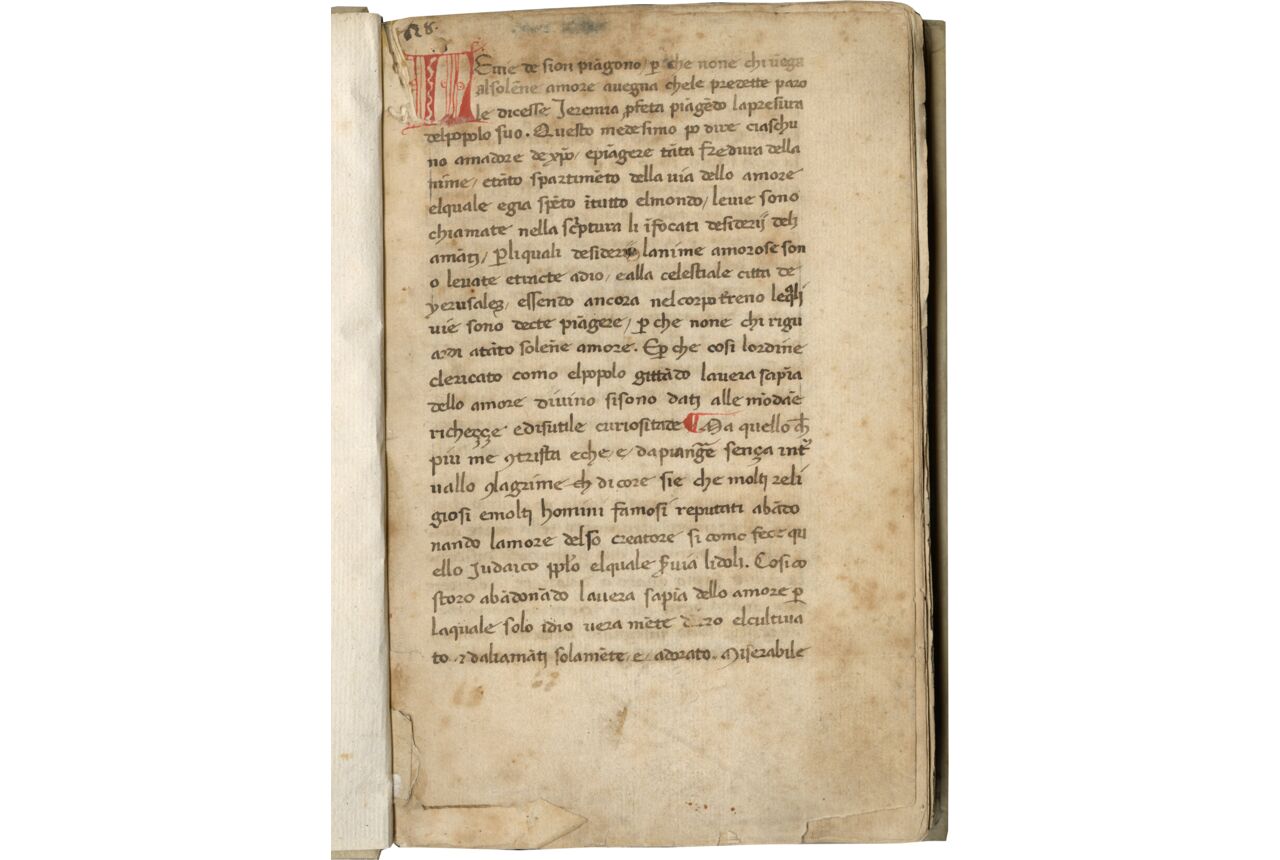 128.
LEuie de sion piāgono, ꝑ che none chi uēga
alsolēne amore auegna chele predette paro
le dicesse Jeremia ꝓfeta piāgēdo lapresura
delpopolo suo. Questo medesimo po dire ciaschu
no amadore de xp̄o, epiāgere tāta fredura della
nime, etāto spartimēto della uia dello amore
elquale egia spēto ītutto elmondo, leuie sono
chiamate nella scͥptura li īfocati desiderij deli
amāti, Ꝑliquali desiderij lanime amorose son
o leuate etracte adio, ealla celestiale citta de
yerusaleꝫ, essendo ancora nelcorpo tr̄eno leq̄li
uie sono decte piāgere, ꝑ che none chi rigu
ardi atāto solēne amore. Eꝑ che cosi lordine
clericato como elpopolo gittādo lauera sapīa
dello amore diuino sisono dati alle mōdāe
richeççe edisutile curiositade ¶ Ma quello cħ
piu me ꝯtrista eche e dapiangr̄e sença int̄
uallo ꝯlagrime cħ di core sie che molti reli
giosi emolti homini famosi reputati abādo
nando lamore delsō creatore si como fece qu
ello Judaico ppl̄o elquale s̄uia lidoli. Cosi co
storo abādonādo lauera sapīa dello amore ꝑ
laquale solo idio uera mēte elcultiua
to ⁊ daliamāti solamēte e adorato. Miserabile